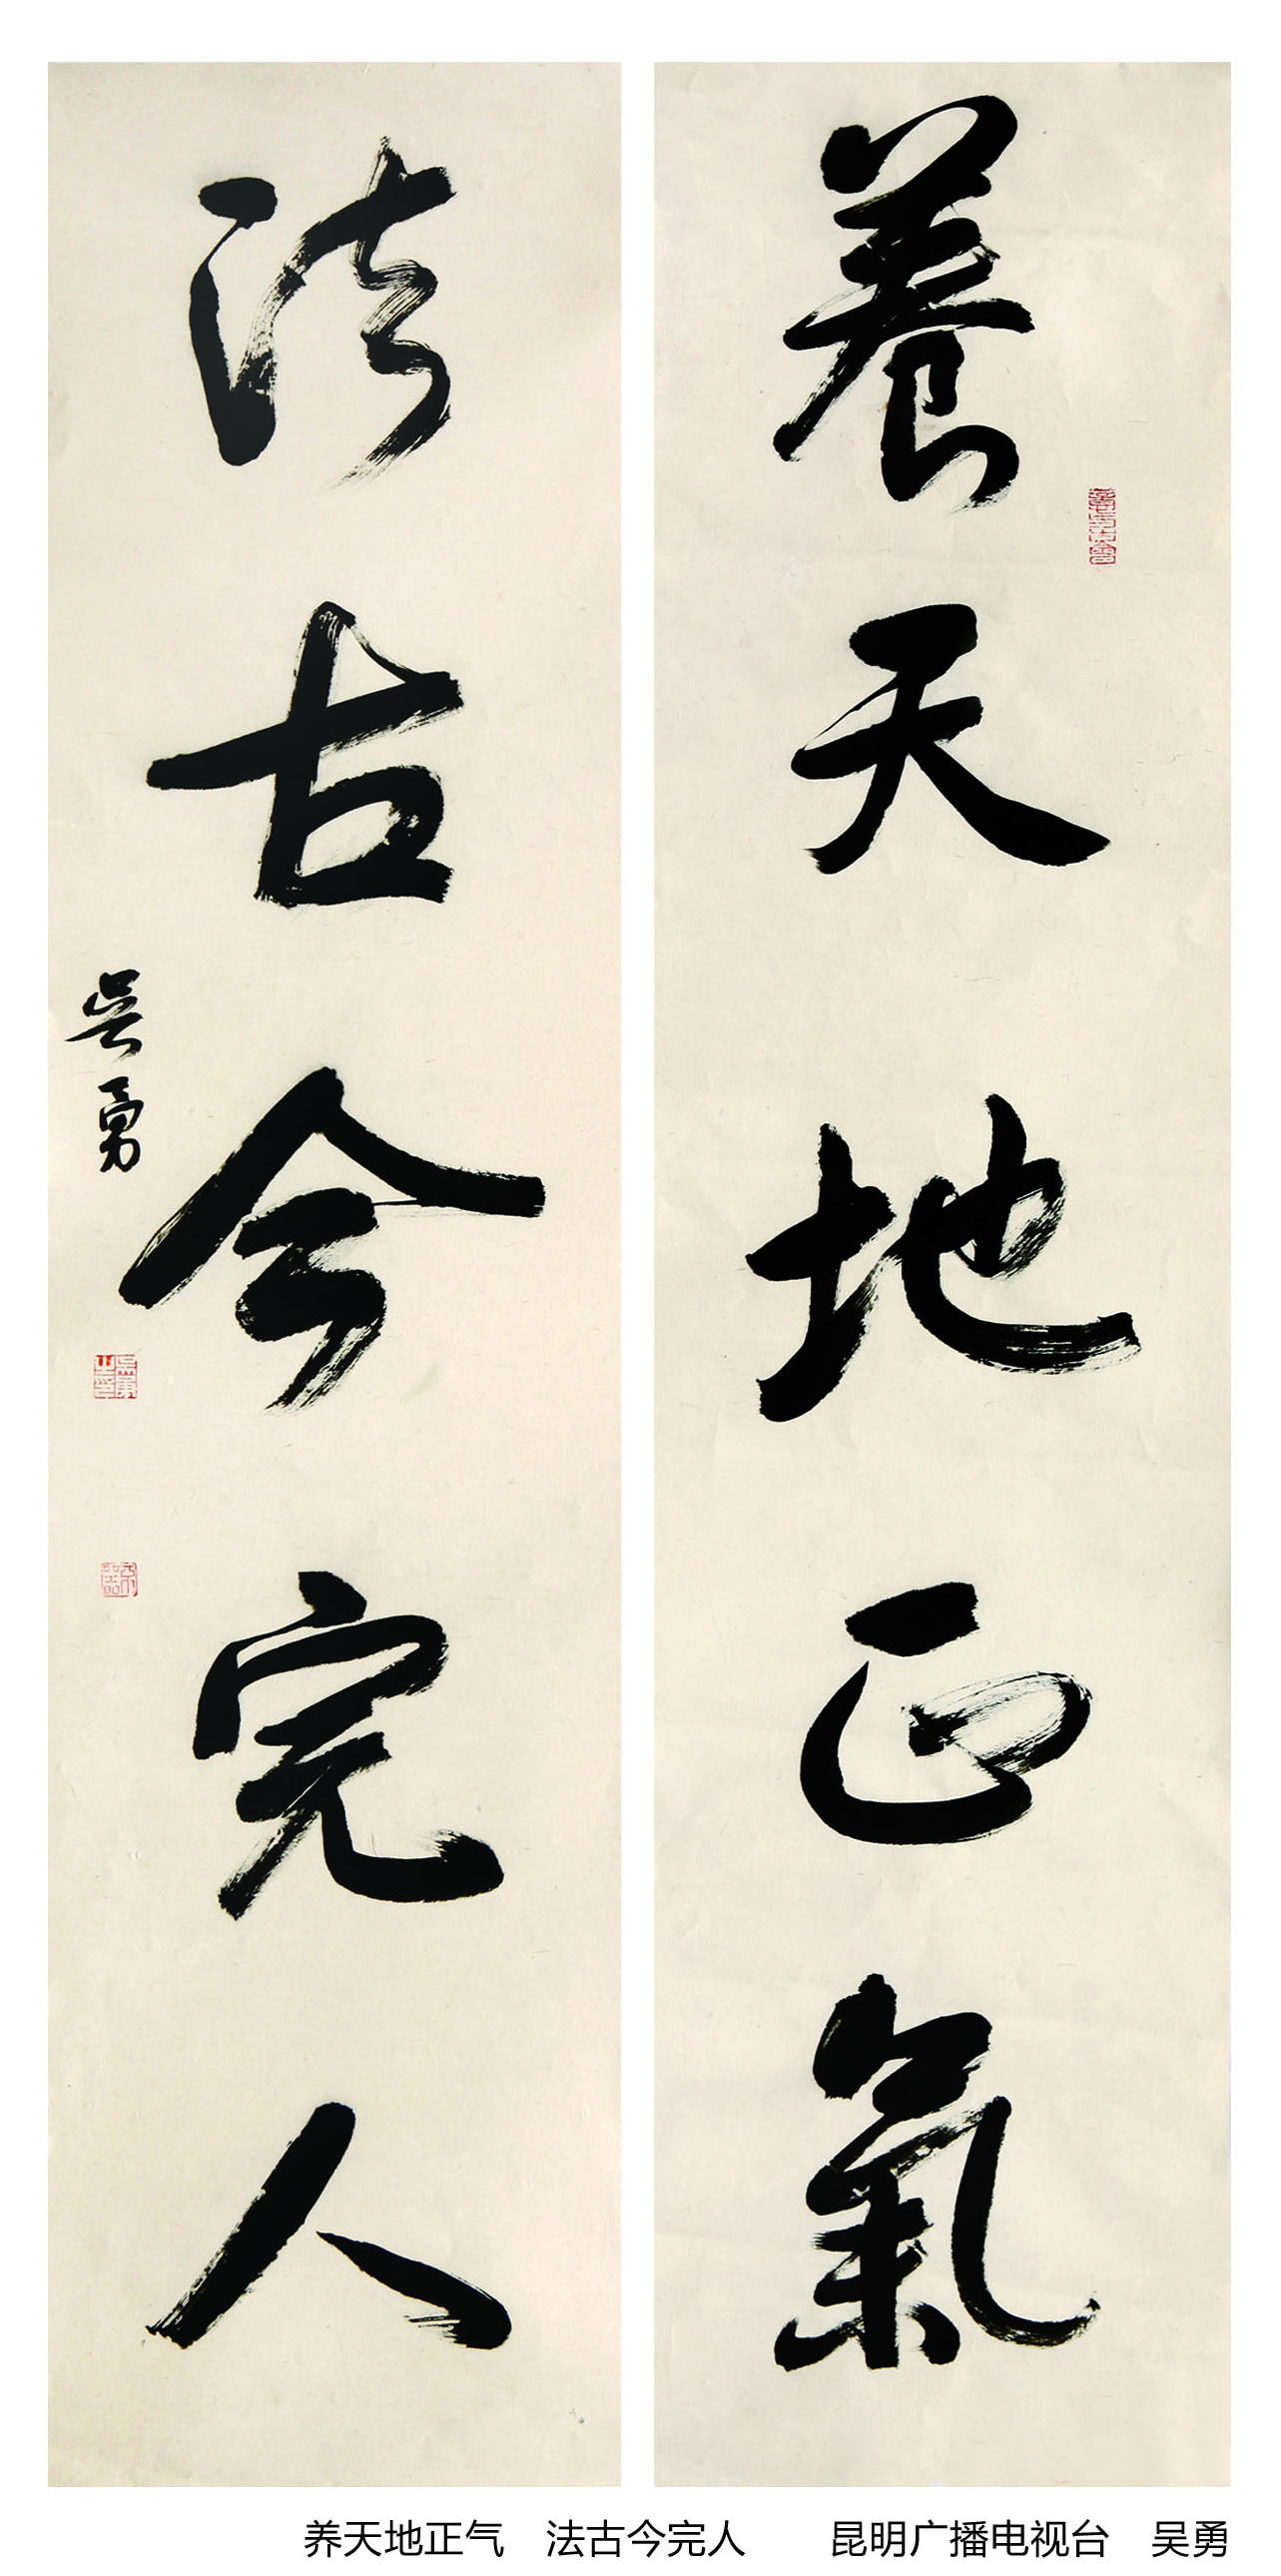 養天地正氣
法古今完人
吳勇
养天地正气　法古今完人　　昆明广播电视台　吴勇